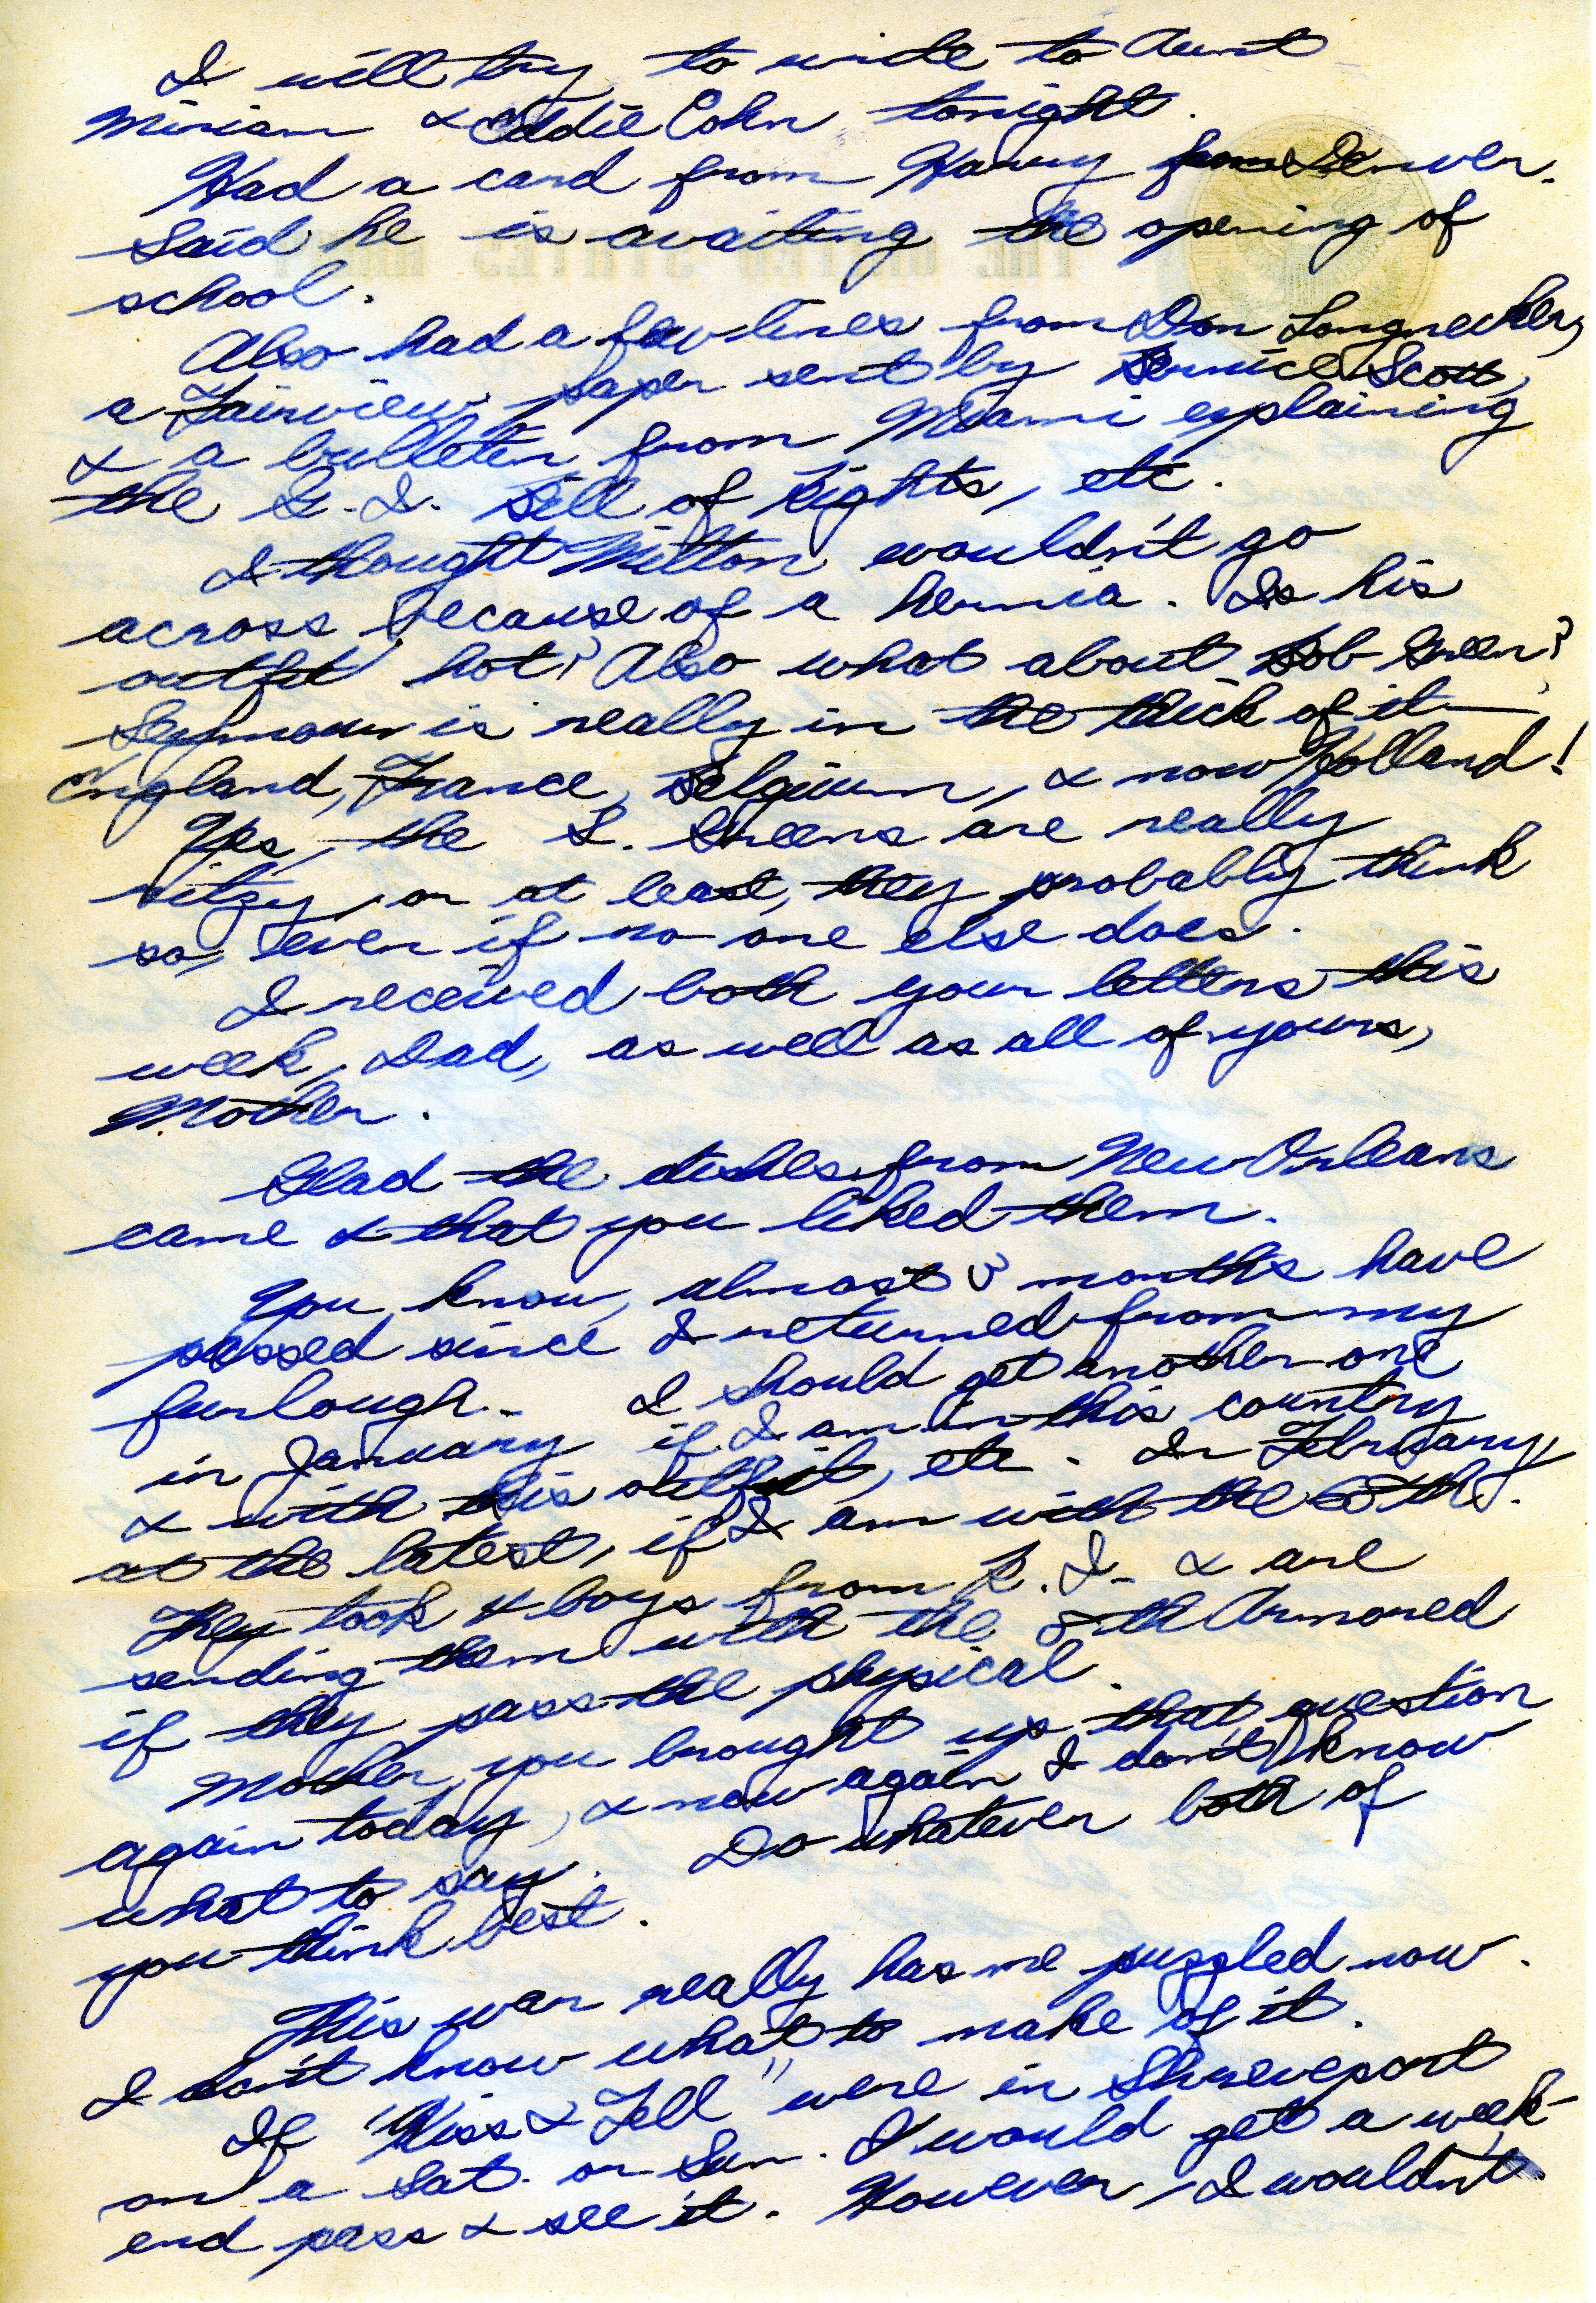 I will try to write to Aunt
Miriam & Eddie Cohn tonight.
Had a card from Harry from Denver.
Said he is awaiting the opening of
school.
Also had a few lines from Don Longnecker,
a Fairview paper sent by Bernice Scott,
& a bulletin from Miami explaining
the G.I. Bill of Rights, etc.
I thought Milton wouldn't go
across because of a hernia. Is his
outfit hot? Also what about Bob Green?
Seymour is really in the thick of it —
England, France, Belgium, & now Holland!
Yes, the L. Greens are really
ritzy, or at least, they probably think
so, even if no one else does.
I received both your letters this
week, Dad, as well as all of yours,
Mother.
Glad the dishes from New Orleans
came & that you liked them.
You know, almost 3 months have
passed since I returned from my
furlough. I should get another one
in January if I am in this country
& with this outfit, etc. In February,
at the latest, if I am with the 8th.
They took 4 boys from R.I. & are
sending them with the 8th Armored
if they pass the physical.
Mother, you brought up that question
again today, & now again I don't know
what to say. Do whatever both of
you think best.
This war really has me puzzled now.
I don't know what to make of it.
If "Kiss & Tell" were in Shreveport
on a Sat. or Sun. I would get a week-
end pass & see it. However, I wouldn't
THE UNITED STATES ARMY